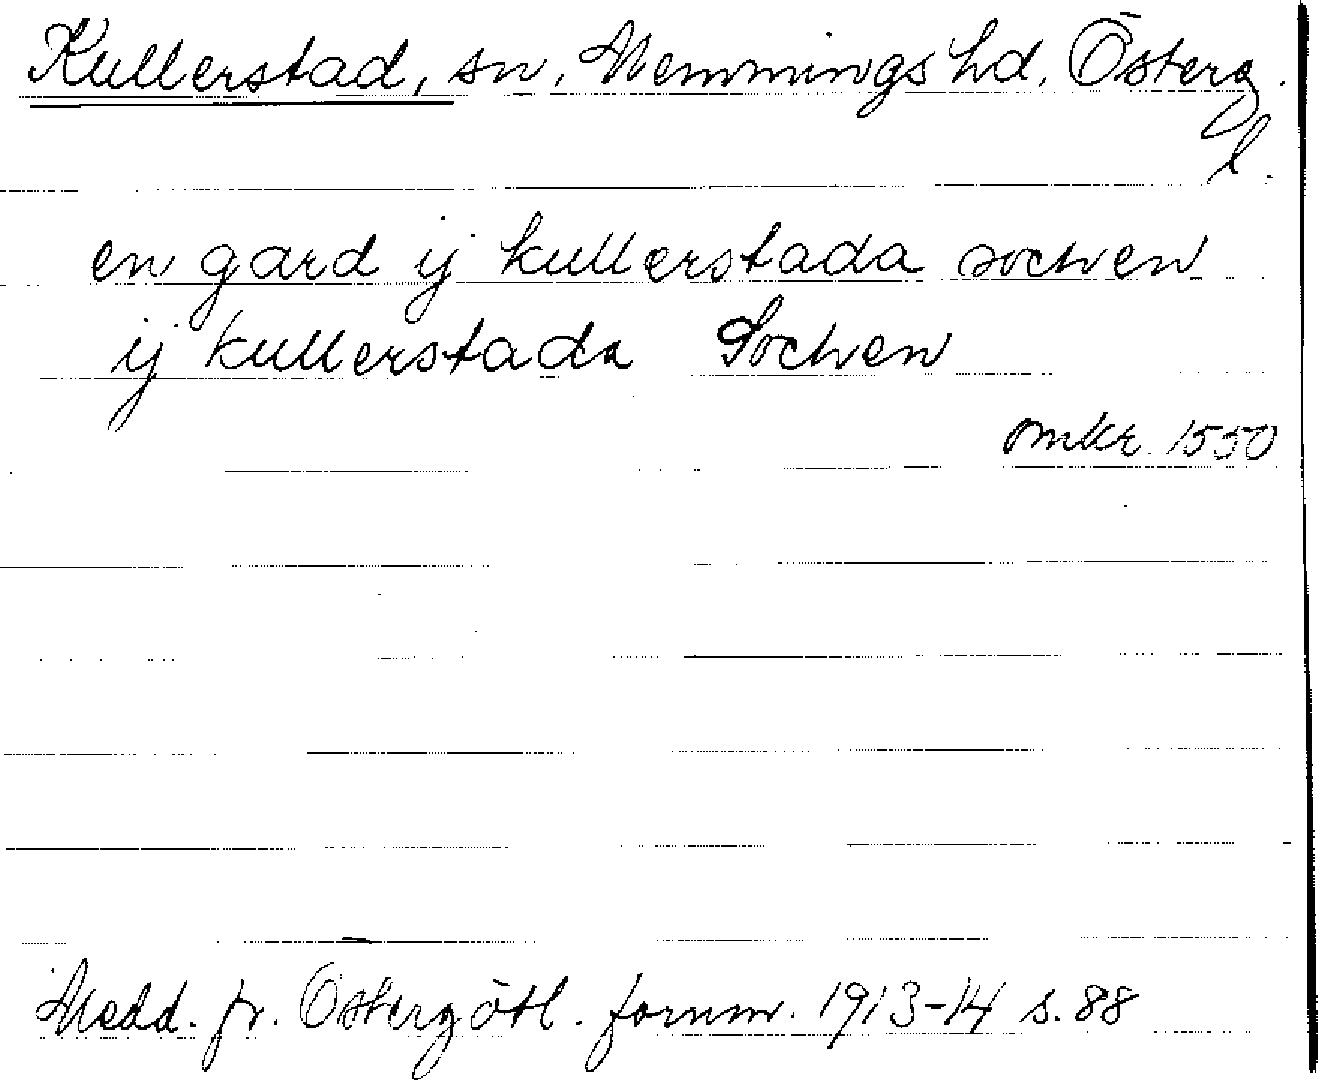 Kullerstad, sn, Memmings hd, Österg.
l.
en gard ij kullerstada sochen
ij kullerstada Sochen
omkr. 1550
Medd. fr. Östergötl. fornm. 1913-14 s. 88